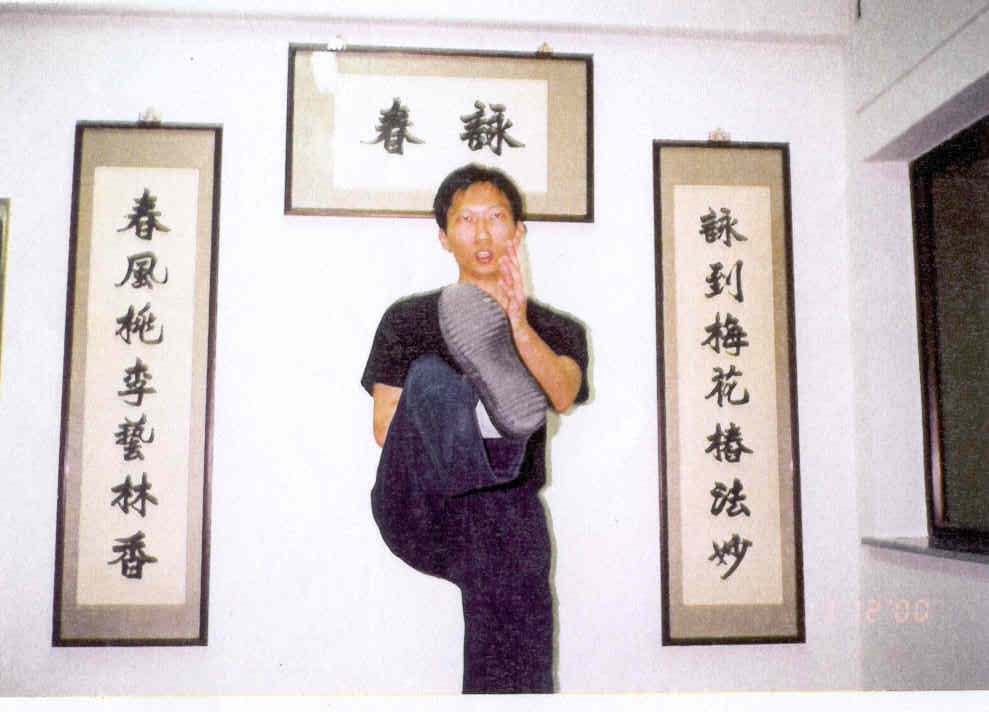 詠春
詠到梅花樁法妙
春風桃李藝林香
12'00